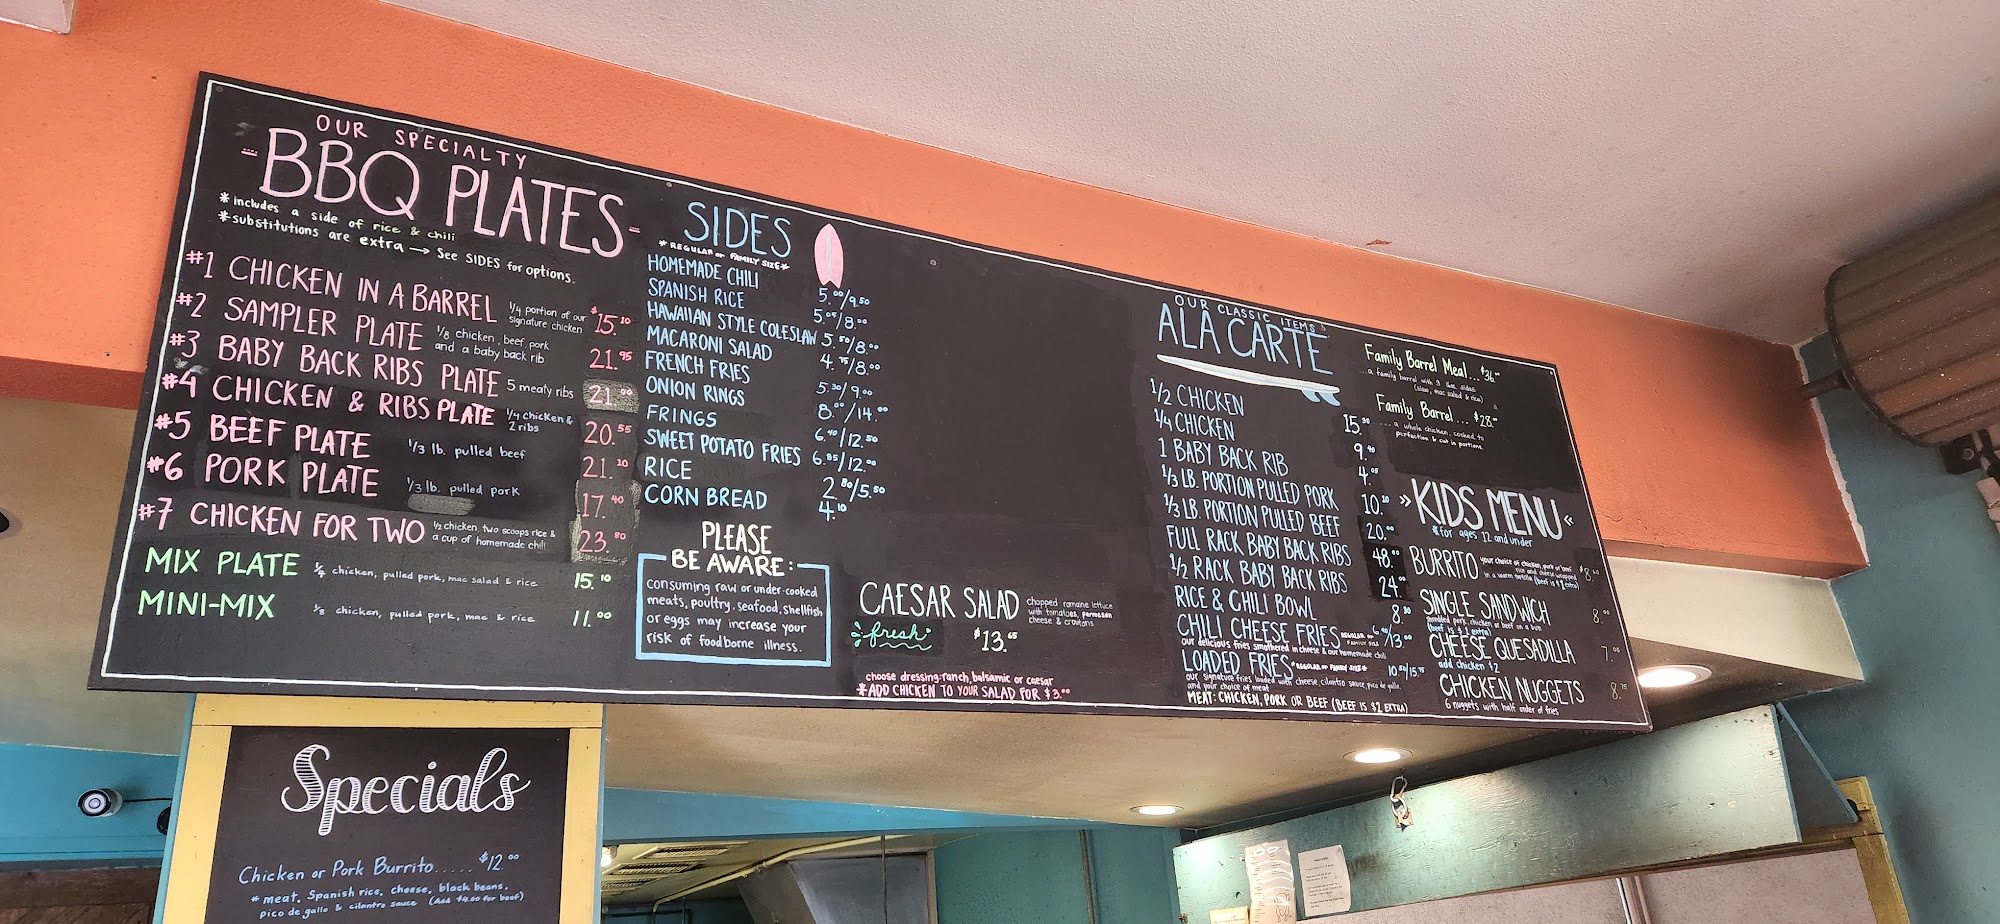 OUR SPECIALTY
BBQ PLATES
*includes a side of rice & chili
*substitutions are extra → See SIDES for options.
#1 CHICKEN IN A BARREL 1/4 portion of our signature chicken $15.10
#2 SAMPLER PLATE 1/8 chicken, beef, pork and a baby back rib 21.95
#3 BABY BACK RIBS PLATE 5 meaty ribs 21.00
#4 CHICKEN & RIBS PLATE 1/4 chicken & 2 ribs 20.55
#5 BEEF PLATE 1/3 lb. pulled beef 21.10
#6 PORK PLATE 1/3 lb. pulled pork 17.40
#7 CHICKEN FOR TWO 1/2 chicken, two scoops rice & a cup of homemade chili 23.80
MIX PLATE 1/4 chicken, pulled pork, mac salad & rice 15.10
MINI-MIX 1/8 chicken, pulled pork, mac & rice 11.00
SIDES
*REGULAR or FAMILY SIZE*
HOMEMADE CHILI 5.00/9.50
SPANISH RICE 5.05/8.00
HAWAIIAN STYLE COLESLAW 5.50/8.00
MACARONI SALAD 4.75/8.00
FRENCH FRIES 5.30/9.00
ONION RINGS 8.00/14.00
FRINGS 6.40/12.50
SWEET POTATO FRIES 6.85/12.00
RICE 2.80/5.50
CORN BREAD 4.10
PLEASE
BE AWARE:
consuming raw or under-cooked
meats, poultry, seafood, shellfish
or eggs may increase your
risk of foodborne illness.
CAESAR SALAD chopped romaine lettuce with tomatoes, parmesan cheese & croutons
fresh $13.65
choose dressing: ranch, balsamic or caesar
*ADD CHICKEN TO YOUR SALAD FOR $3.00
OUR CLASSIC ITEMS
ALA CARTE
1/2 CHICKEN 15.30
1/4 CHICKEN 9.40
1 BABY BACK RIB 4.05
1/3 LB. PORTION PULLED PORK 10.10
1/3 LB. PORTION PULLED BEEF 20.00
FULL RACK BABY BACK RIBS 48.00
1/2 RACK BABY BACK RIBS 24.00
RICE & CHILI BOWL 8.30
CHILI CHEESE FRIES REGULAR or FAMILY SIZE 6.90/13.00
our delicious fries smothered in cheese & our homemade chili
LOADED FRIES *REGULAR OR FAMILY SIZE* 10.50/15.75
our signature fries loaded with cheese, cilantro sauce, pico de gallo,
and your choice of meat
MEAT: CHICKEN, PORK OR BEEF (BEEF IS $2 EXTRA)
Family Barrel Meal... $36.00
...a family barrel with 3 lbs. sides
(slaw, mac salad & rice)
Family Barrel... $28.00
...a whole chicken, cooked to
perfection & cut in portions
»KIDS MENU«
*for ages 12 and under
BURRITO your choice of chicken, pork or beef rice and cheese wrapped in a warm tortilla (beef is $1 extra) $8.50
SINGLE SANDWICH 8.00
shredded pork, chicken or beef on a bun
(beef is $1 extra)
CHEESE QUESADILLA 7.00
add chicken $2
CHICKEN NUGGETS 8.75
6 nuggets with half order of fries
Specials
Chicken or Pork Burrito..... $12.00
*meat, Spanish rice, cheese, black beans,
pico de gallo & cilantro sauce (Add $4.00 for beef)